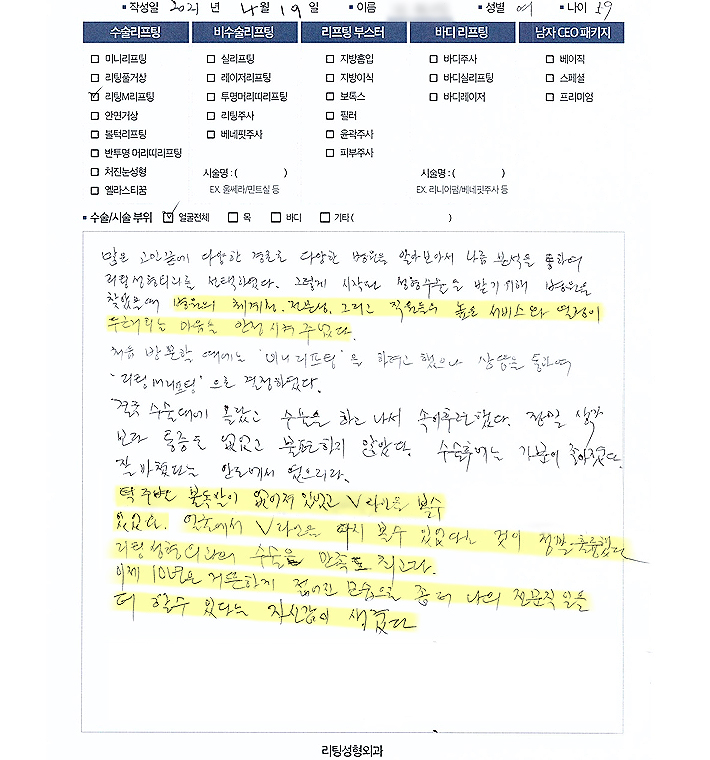 작성일 2021 년 4 월 19 일 이름 성별 여 나이 59
수술리프팅 비수술리프팅 리프팅 부스터 바디 리프팅 남자 CEO 패키지
미니리프팅 실리프팅 지방흡입 바디주사 베이직
리팅풀거상 레이저리프팅 지방이식 바디실리프팅 스페셜
리팅M리프팅 투명머리띠리프팅 보톡스 바디레이저 프리미엄
안면거상 리팅주사 필러
볼턱리프팅 베네핏주사 윤곽주사
반투명 머리띠리프팅 피부주사
처진눈성형 시술명 : ( ) 시술명 : ( )
엘라스티꿈 EX. 울쎄라/민트실 등 EX. 리니어펌/베네핏주사 등
수술/시술 부위 얼굴전체 목 바디 기타 ( )
많은 고민끝에 다양한 경로로 다양한 병원을 알아보아서 나름 분석을 통하여
리팅성형외과를 선택하였다. 그렇게 시작된 성형수술을 받기위해 병원을
찾았을때 병원의 체계성, 전문성, 그리고 직원들의 높은 서비스와 열정이
두근거리는 마음을 안정시켜 주었다.
처음 방문할 때에는 '미니리프팅'을 하려고 했으나 상담을 통하여
'리팅M리프팅'으로 결정하였다.
결국 수술대에 올랐고 수술을 하고 나서 속이후련했다. 전일 생각
보다 통증도 없었고 불편하지 않았다. 수술후에는 기분이 좋아졌다.
잘 마쳤다는 안도에서 였으리라.
턱 주변 불독살이 없어져 있었고 V라인을 볼수
있었다. 얼굴에서 V라인을 다시 볼수 있었다는 것이 정말 훌륭했다
리팅성형외과의 수술을 만족 최고다.
이제 10년은 거뜬하게 젊어진 모습으로 좀 더 나의 전문직 일을
더 할수 있다는 자신감이 생겼다
리팅성형외과